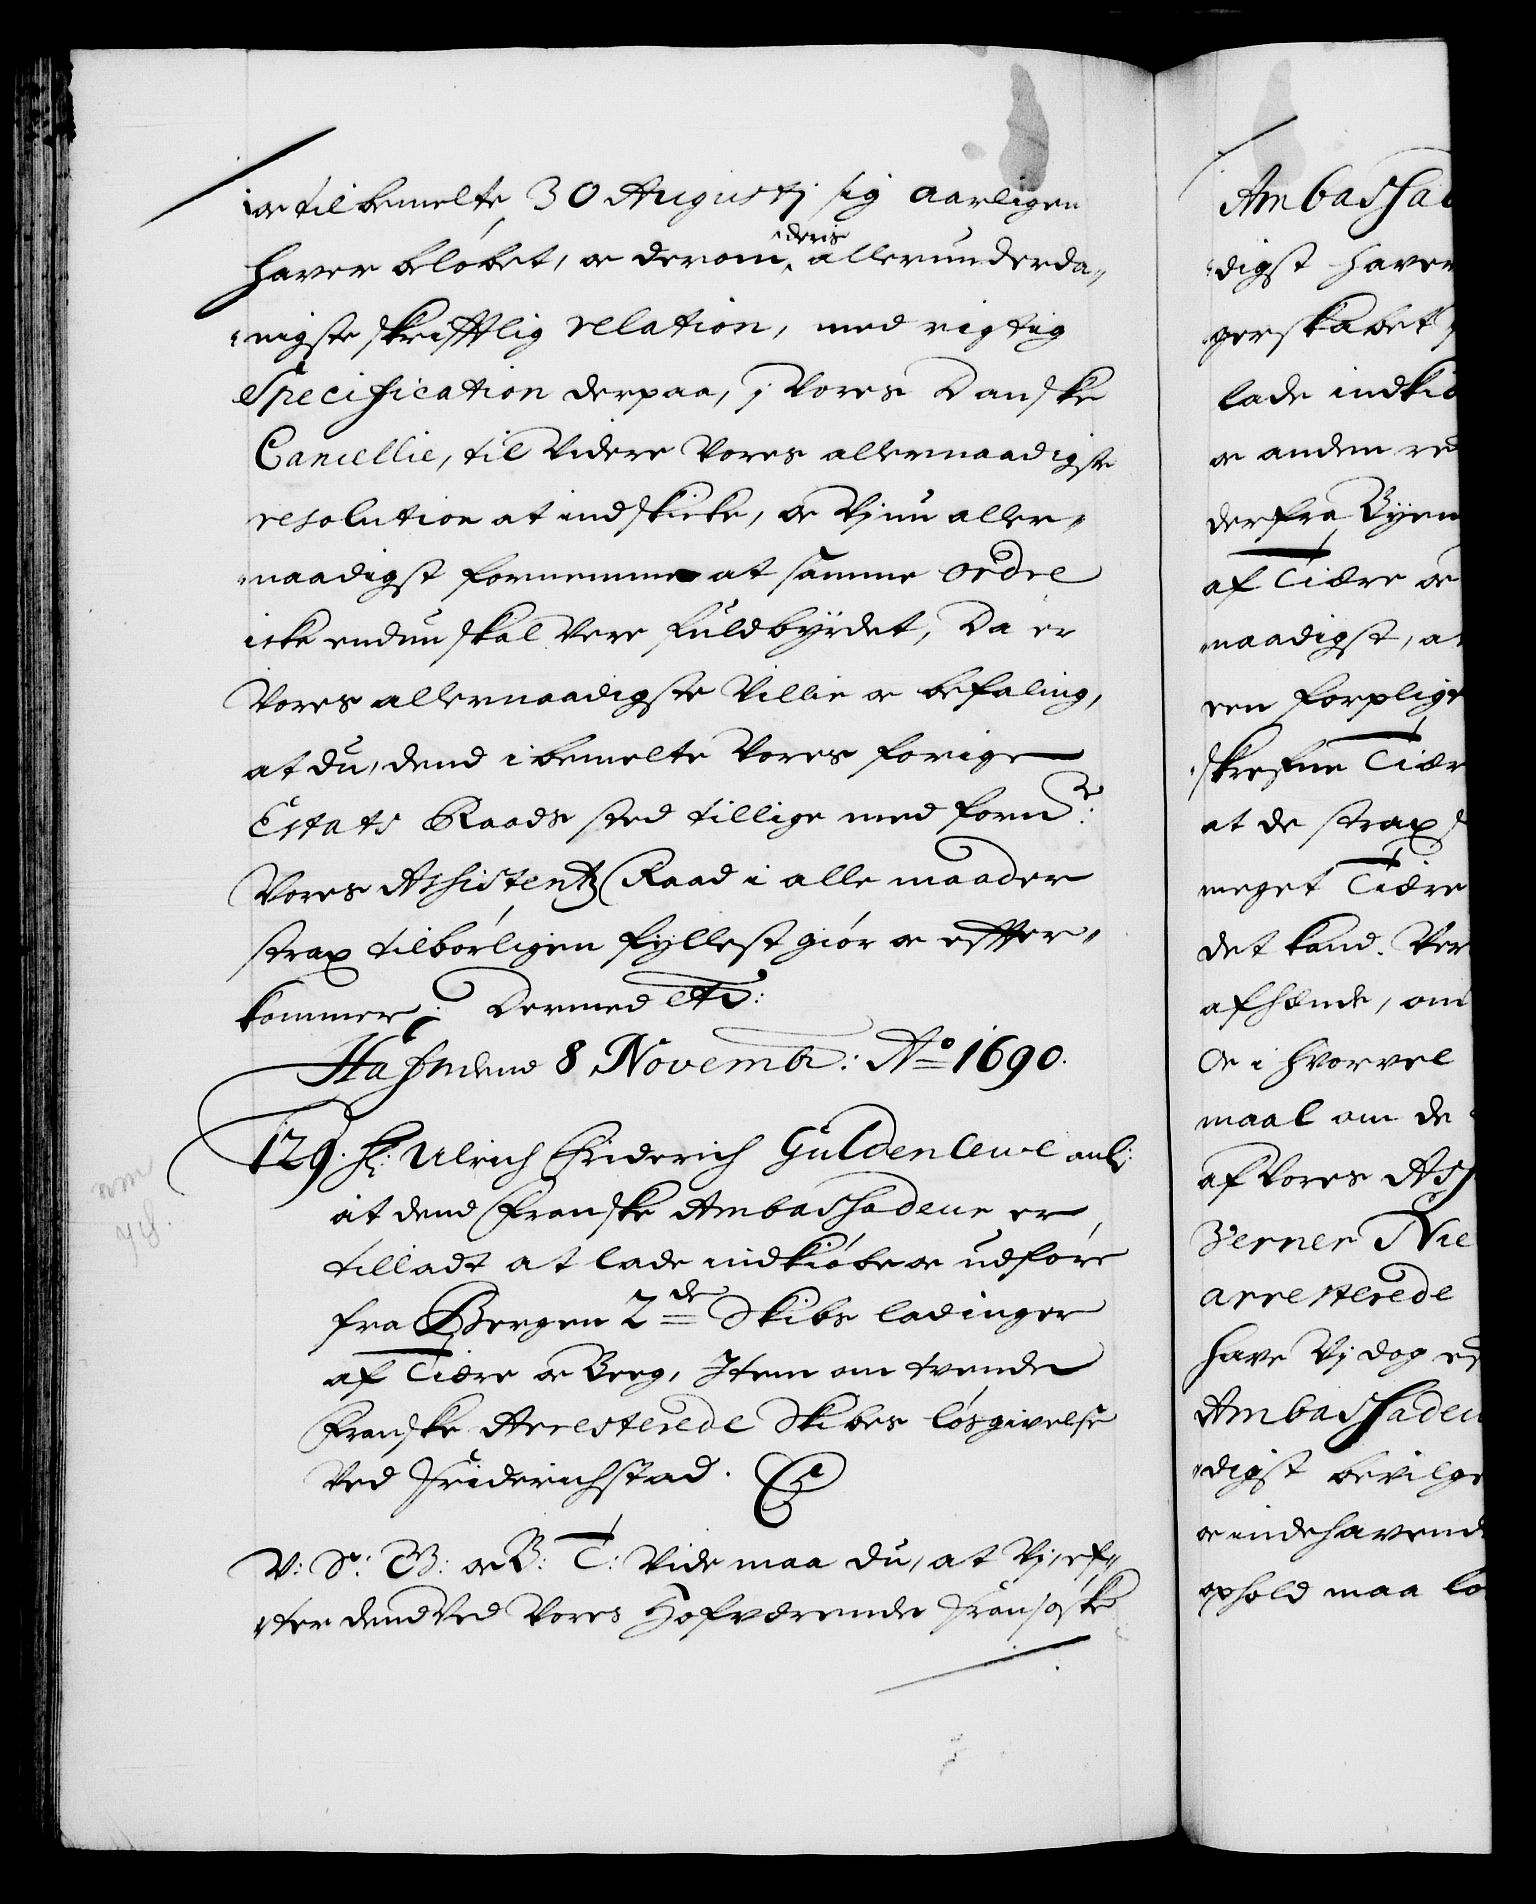 oc til bemelte 30 Augustj sig aarligen
hafver beløbet, oc derom deris allerunderda„
„nigste skrifftlig relation, med rigtig
Specification derpaa, j Vores Danske
Cancellie, til Videre Vores allernaadigste
resolution at indskicke, oc Vj nu aller„
„naadigst fornemme at samme ordre
icke endnu skal Vere fuldbyrdet, Da er
Vores allernaadigste Villie oc befaling,
at du, dend i bemelte Vores forige
Estats Raads sted tillige med fornd:
Vores Assistentz Raad i alle maader
strax tilbørligen fyllest giør oc effter„
kommer; Dermed etc:
Hafn dend 8 Novembr: Ao 1690.
129. H: Ulrich Friderich Güldenlewe anl:
at dend Franske Ambassadeur er
tilladt at lade indkiøbe oc udføre
fra Bergen 2de Skibs ladinger
af Tiære oc Beeg, Item om tvende
Franske Arresterede Skibes løsgivelse
Ved Friderichstad.
V: S: G: oc B: T: Vide maa du, at Vj, ef„
„ter dend Ved Vores Hof værende Fransøske
Ambassad
„digst hafver
gerskabet
lade indkiø
oc anden re
derfra Byen
af Tiære oc
naadigst, a
een forplige
„skrefne Tiær
at de strax
meget Tiære
det kand. Ver
afhænde, om
Oc i hvorvel
maal om de
af Vores Ass
Verner Nie
arresterede
have Vj dog
Ambassadeu
„digst bevilge
oc indehavend
ophold maa lø